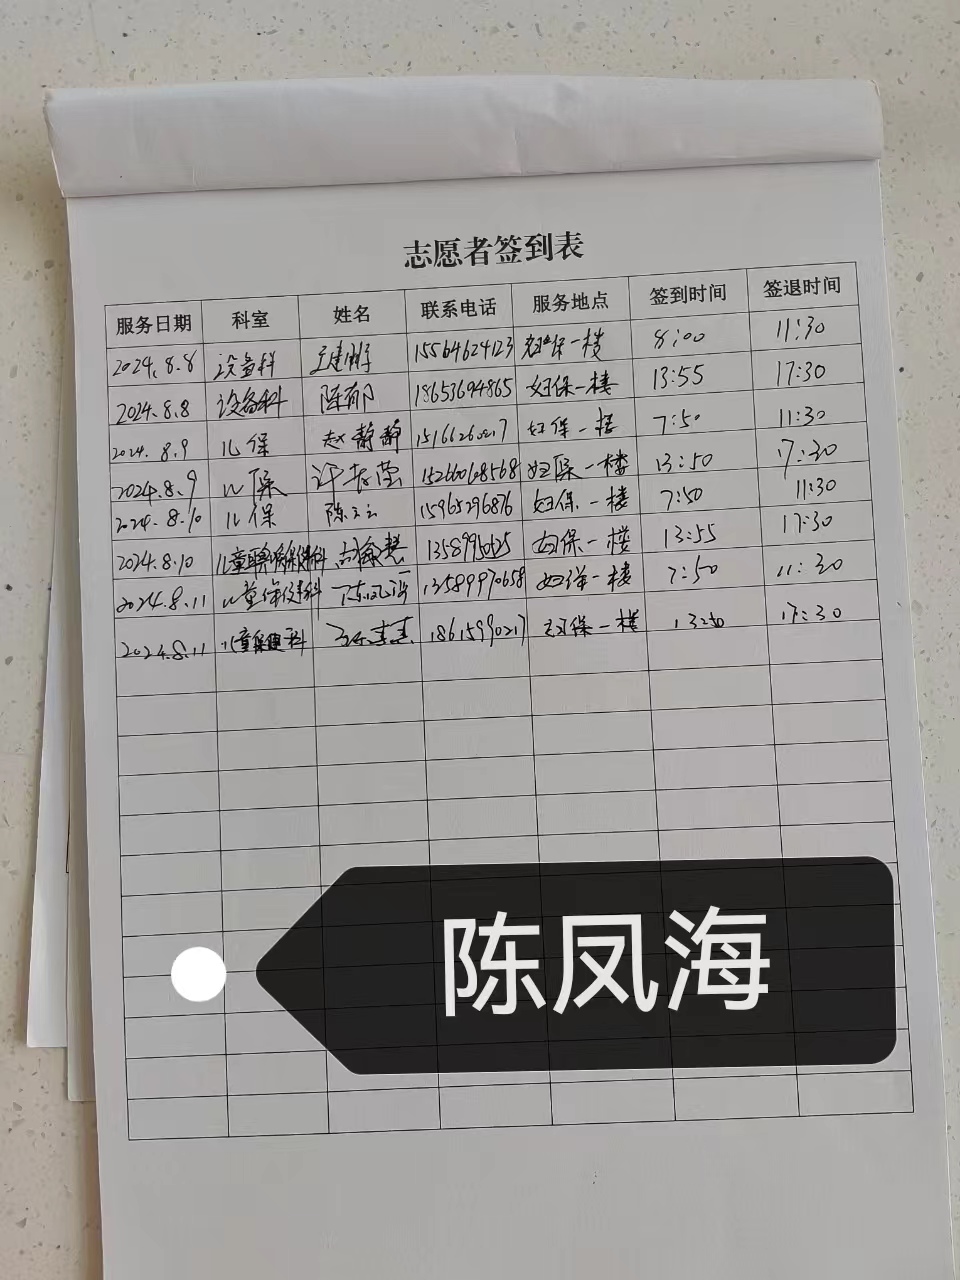 志愿者签到表
服务日期 科室 姓名 联系电话 服务地点 签到时间 签退时间
2024.8.8 设备科 15564624123 妇保一楼 8:00 11:30
2024.8.8 设备科 陈郁 18653694865 妇保一楼 13:55 17:30
2024.8.9 儿保 赵静静 15166260217 妇保一楼 7:50 11:30
2024.8.9 儿保 许 莹 15266068568 妇保一楼 13:50 17:30
2024.8.10 儿保 陈云云 15965296876 妇保一楼 7:50 11:30
2024.8.10 妇保一楼 13:55 17:30
2024.8.11 儿童保健科 陈凤海 13589970658 妇保一楼 7:50 11:30
2024.8.11 儿童保健科 18615990217 妇保一楼 13:50 17:30
陈凤海